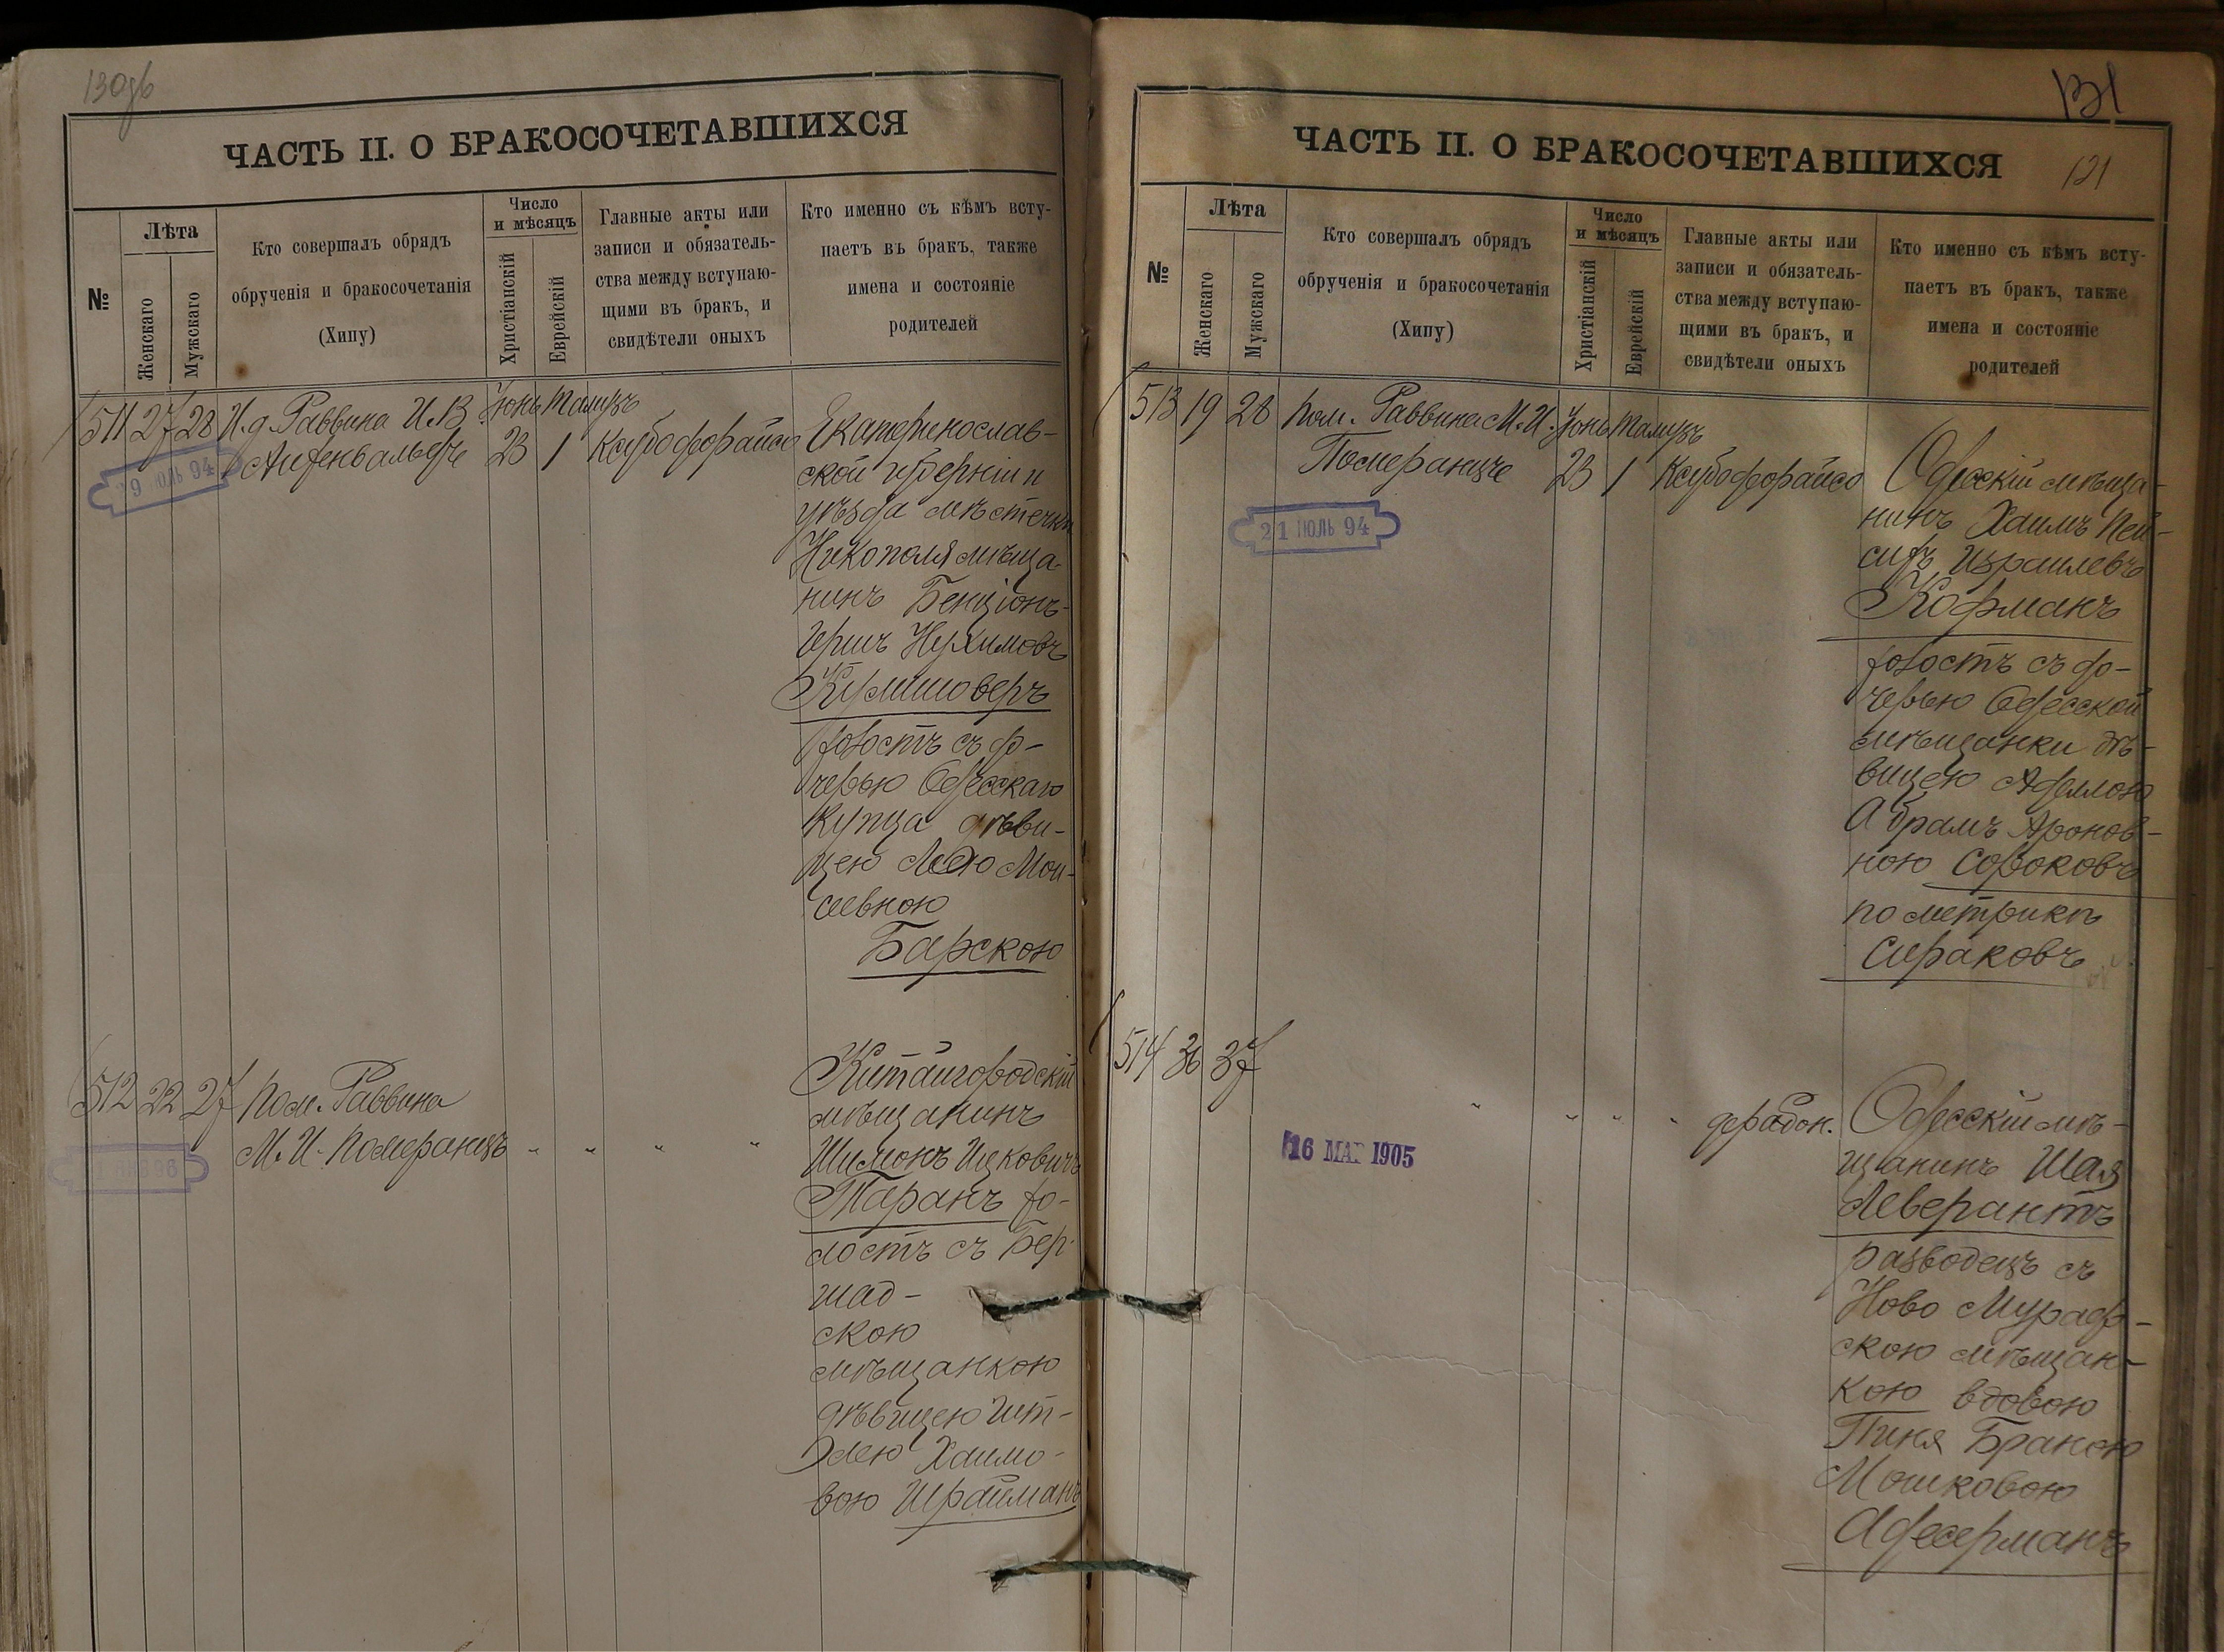 130об
ЧАСТЬ II. О БРАКОСОЧЕТАВШИХСЯ
№
Лѣта
Женскаго
Мужскаго
Кто совершалъ обрядъ
обрученія и бракосочетанія
(Хипу)
Число
и мѣсяцъ
Христіанскій
Еврейскій
Главные акты или
записи и обязатель-
ства между вступаю-
щими въ бракъ, и
свидѣтели оныхъ
Кто именно съ кѣмъ всту-
паетъ въ бракъ, также
имена и состояніе
родителей
511 27 28 И.д. Раввина И.В. Іюнь Тамузъ
23 1
Екатеринослав-
ской губерніи и
уѣзда мѣстечка
Никополя мѣща-
нинъ Бенціонъ-
Гершъ Нухимовъ
холостъ съ до-
черью Одесскаго
купца дѣви-
цею Леею Мои-
сеевною
Барскою
512 22 27 Пом. Раввина
М. И. Померанцъ " " " "
Китайгородскій
мѣщанинъ
Шимонъ Ицковичъ
Таранъ хо-
лостъ съ Бер-
шад-
скою
мѣщанкою
дѣвицею Ит-
Хаимо-
вою Шрайманъ
131
121
ЧАСТЬ II. О БРАКОСОЧЕТАВШИХСЯ
№
Лѣта
Женскаго
Мужскаго
Кто совершалъ обрядъ
обрученія и бракосочетанія
(Хипу)
Число
и мѣсяцъ
Христіанскій
Еврейскій
Главные акты или
записи и обязатель-
ства между вступаю-
щими въ бракъ, и
свидѣтели оныхъ
Кто именно съ кѣмъ всту-
паетъ въ бракъ, также
имена и состояніе
родителей
513 19 28 Пом. Раввина М. И. Іюнь Тамузъ
Померанцъ 23 1
21 ІЮЛЬ 94
Одесскій мѣща-
нинъ Хаимъ Пей-
сихъ Израилевъ
Кофманъ
холостъ съ до-
черью Одесской
мѣщанки дѣ-
вицею Аделлою
Абрамъ Аронов-
ною Сороковъ
по метрикѣ
Сираковъ
514 36 37
" " " "
16 МАР 1905
Одесскій мѣ-
щанинъ Шая
Леверантъ
разводецъ съ
Ново Мураф-
скою мѣщан-
кою вдовою
Пиня Браною
Мошковою
Адесерманъ